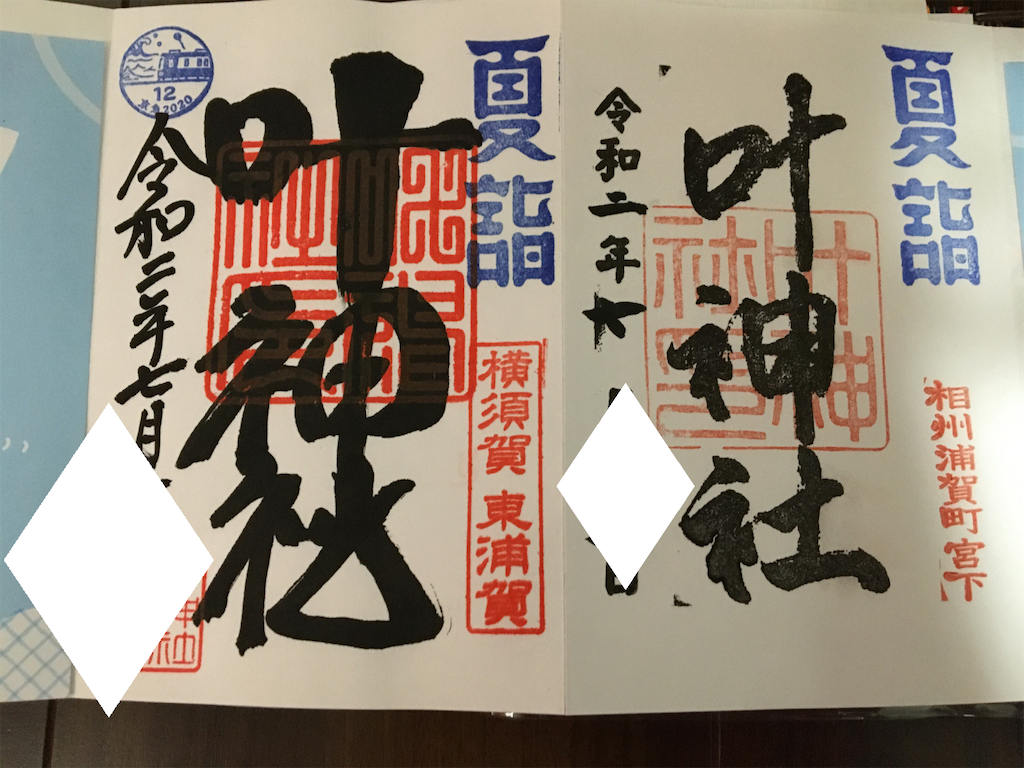 夏詣
相州浦賀町宮下
叶神社
令和二年七
日
夏詣
横須賀 東浦賀
叶神社
12
京急 2020
令和二年七月
神社